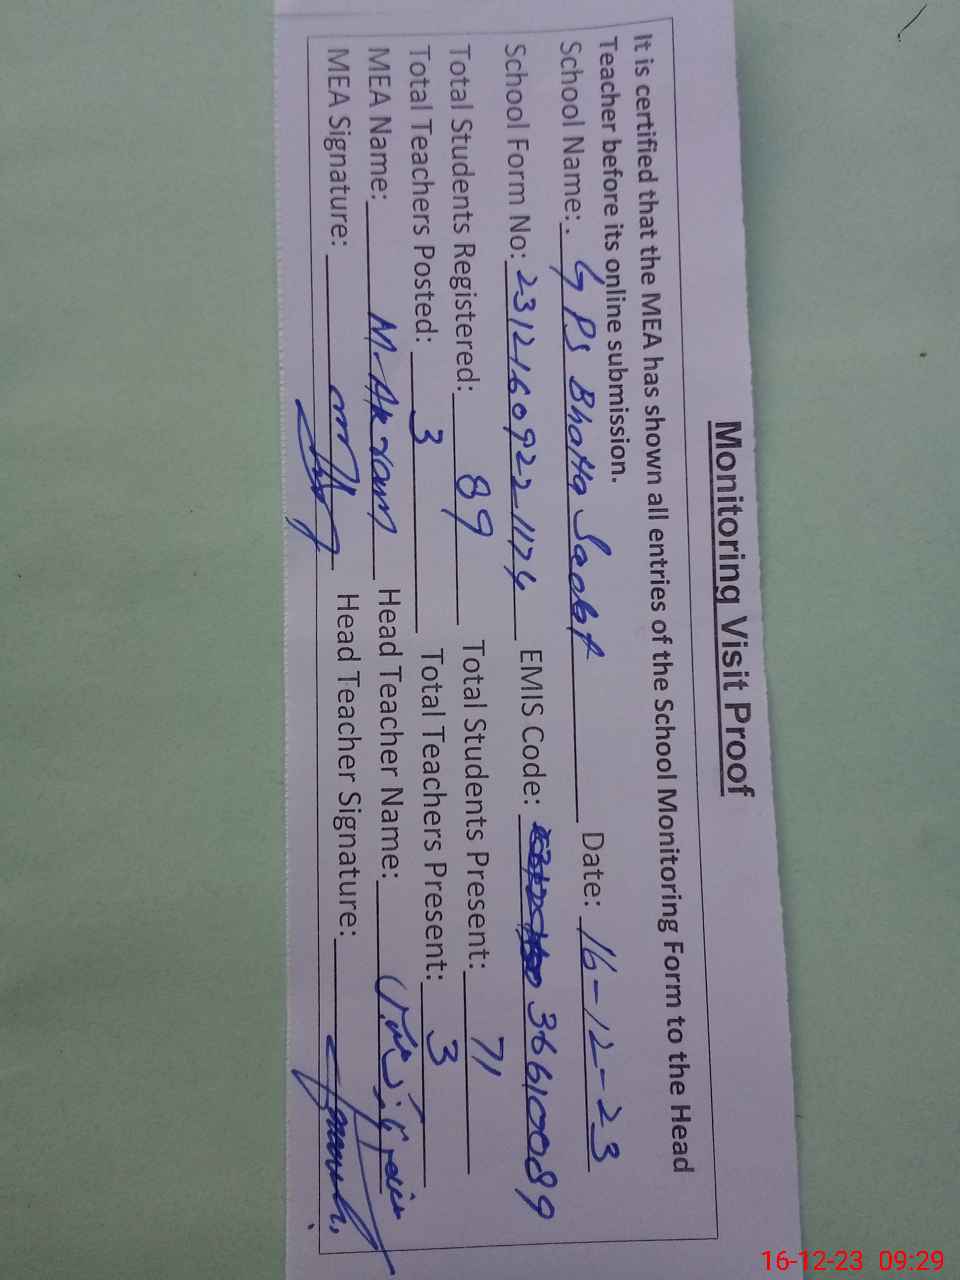 Monitoring Visit Proof
It is certified that the MEA has shown all entries of the School Monitoring Form to the Head
Teacher before its online submission.
School Name: GPS Bhatta Date: 16-12-23
School Form No: 2312160922 1174 EMIS Code: 36610089
Total Students Registered: 89 Total Students Present: 71
Total Teachers Posted: 3 Total Teachers Present: 3
MEA Name: M-Akram Head Teacher Name:
MEA Signature: Head Teacher Signature:
16-12-23 09:29